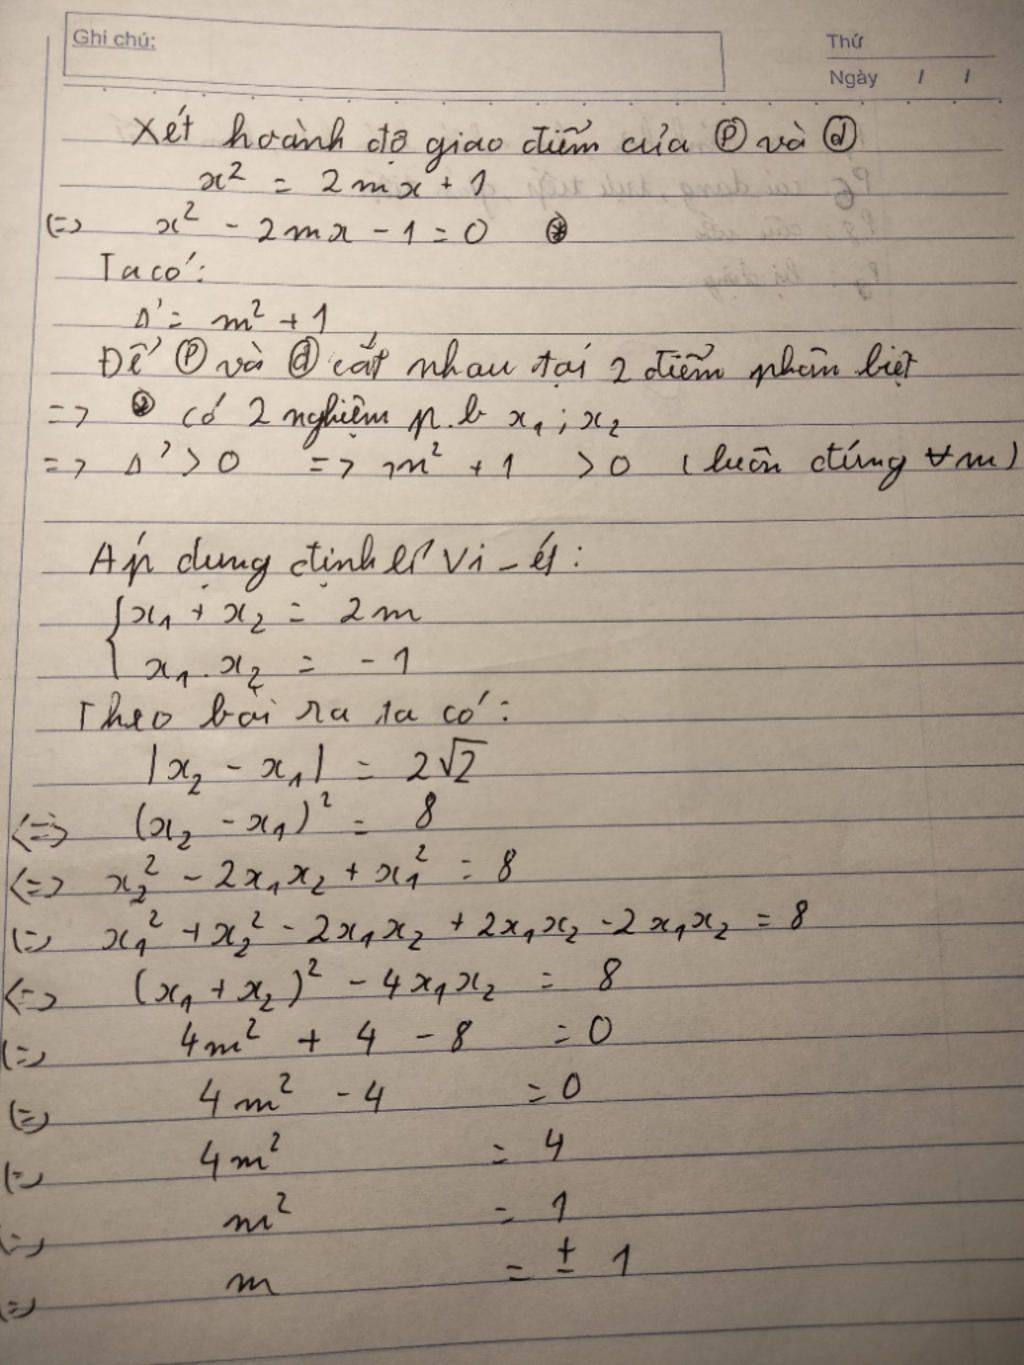 Ghi chú:
Thứ
Ngày / /
Xét hoành độ giao điểm của (P) và (d)
x² = 2mx + 1
(=) x² - 2mx - 1 = 0 (*)
Ta có:
Δ' = m² + 1
Để (P) và (d) cắt nhau tại 2 điểm phân biệt
=> (*) có 2 nghiệm p.b x₁ ; x₂
=> Δ' > 0 => m² + 1 > 0 (luôn đúng ∀m)
Áp dụng định lí Vi-ét:
{ x₁ + x₂ = 2m
x₁ . x₂ = -1
Theo bài ra ta có:
|x₂ - x₁| = 2√2
<=> (x₂ - x₁)² = 8
<=> x₂² - 2x₁x₂ + x₁² = 8
(=) x₁² + x₂² - 2x₁x₂ + 2x₁x₂ - 2x₁x₂ = 8
<=> (x₁ + x₂)² - 4x₁x₂ = 8
(=) 4m² + 4 - 8 = 0
(=) 4m² - 4 = 0
(=) 4m² = 4
(=) m² = 1
(=) m = ± 1